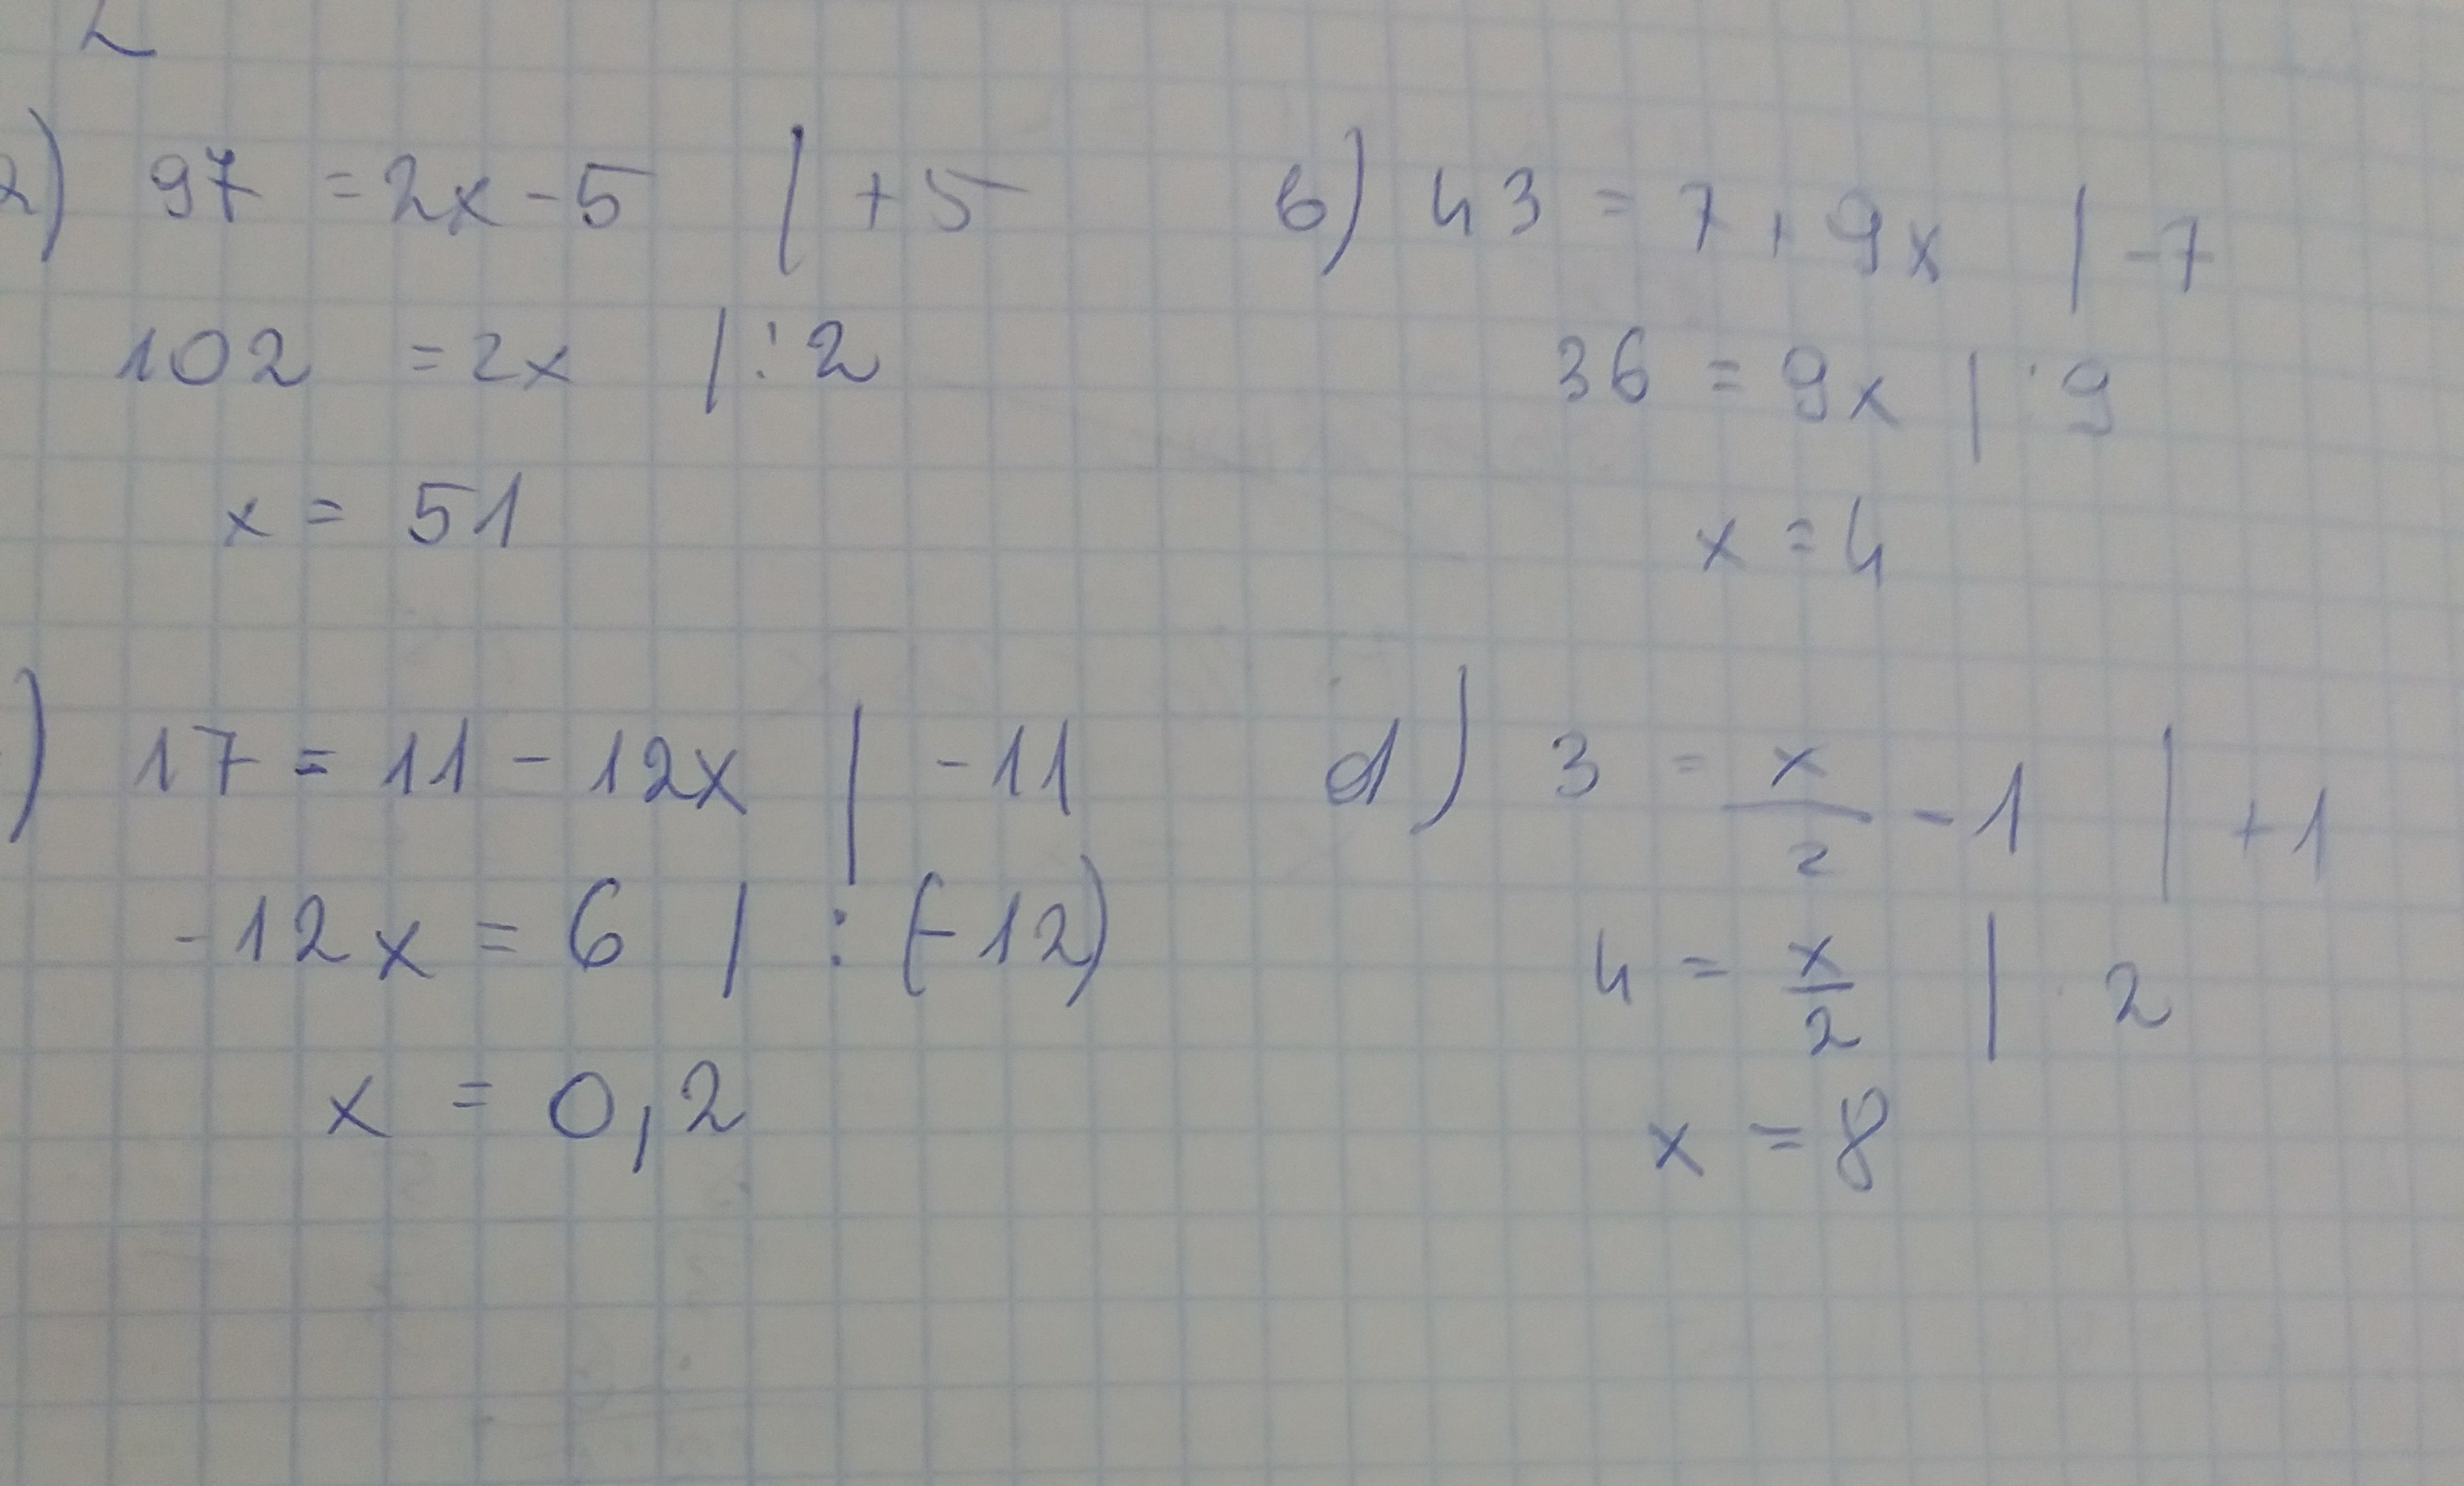 2) 97 = 2x - 5 | + 5
102 = 2x | : 2
x = 51
b) 43 = 7 + 9x | - 7
36 = 9x | : 9
x = 4
) 17 = 11 - 12x | - 11
- 12x = 6 | : (-12)
x = 0,2
d) 3 = x/2 - 1 | + 1
4 = x/2 | · 2
x = 8